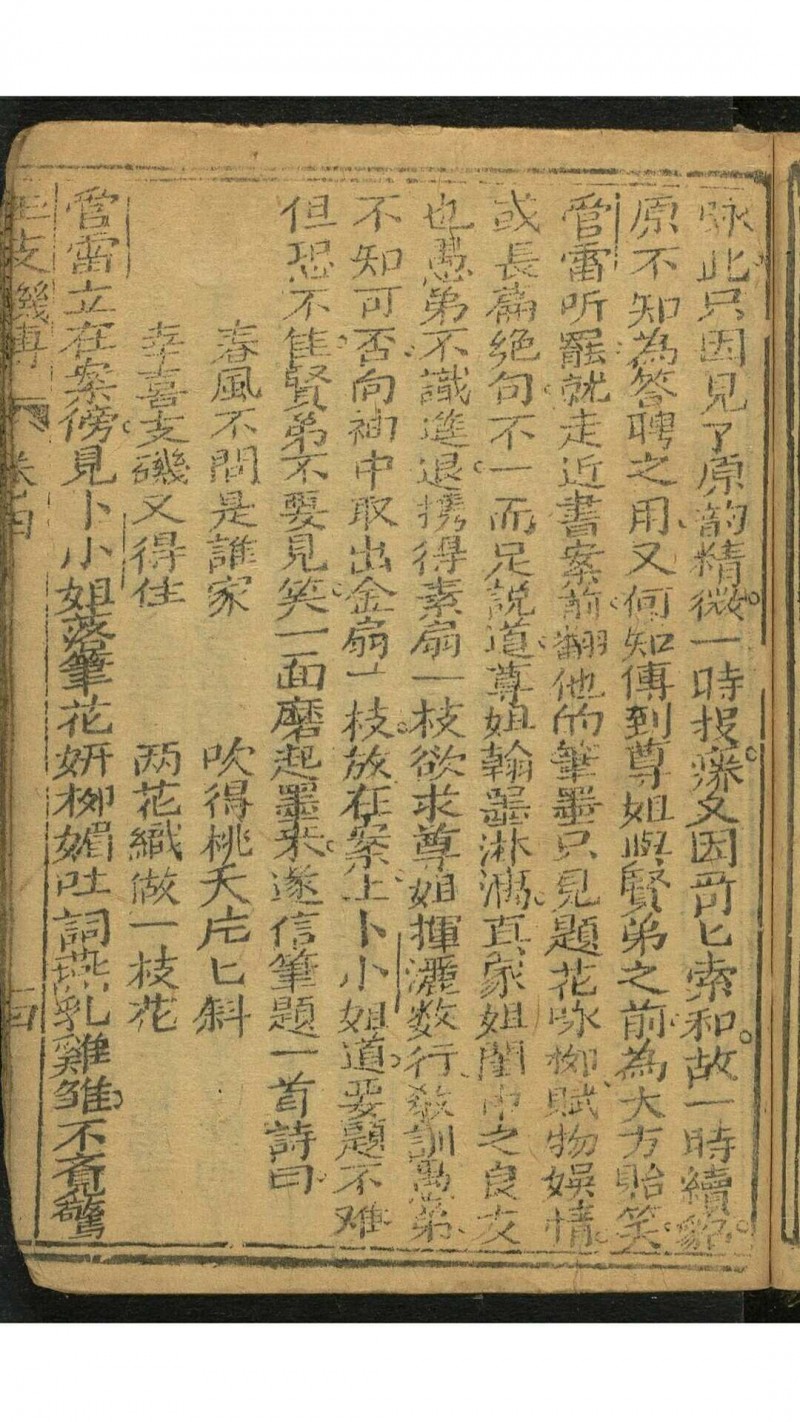 咏此只因見了原韵精微一時投深又因苛匕索和故一時續貂
原不知為答聘之用又何知傳到尊姐與賢弟之前為大方貽笑
管雷听罷就走近書案前翻他的筆墨只見題花咏柳賦物娱情
或長篇绝句不一而足説道尊姐翰墨淋漓真家姐閨中之良友
也愚弟不識進退携得素扇一枝欲求尊姐揮灑数行教訓愚弟
不知可否向袖中取出金扇一枝放在案上卜小姐道要題不难
但恐不佳賢弟不要見笑一面磨起墨来遂信筆題一首詩曰
春風不問是誰家 吹得桃夭片匕斜
幸喜支磯又得住 两花織做一枝花
管雷立在案傍見卜小姐落筆花妍柳媚吐詞燕乳雞雏不覔驚
支機 卷四